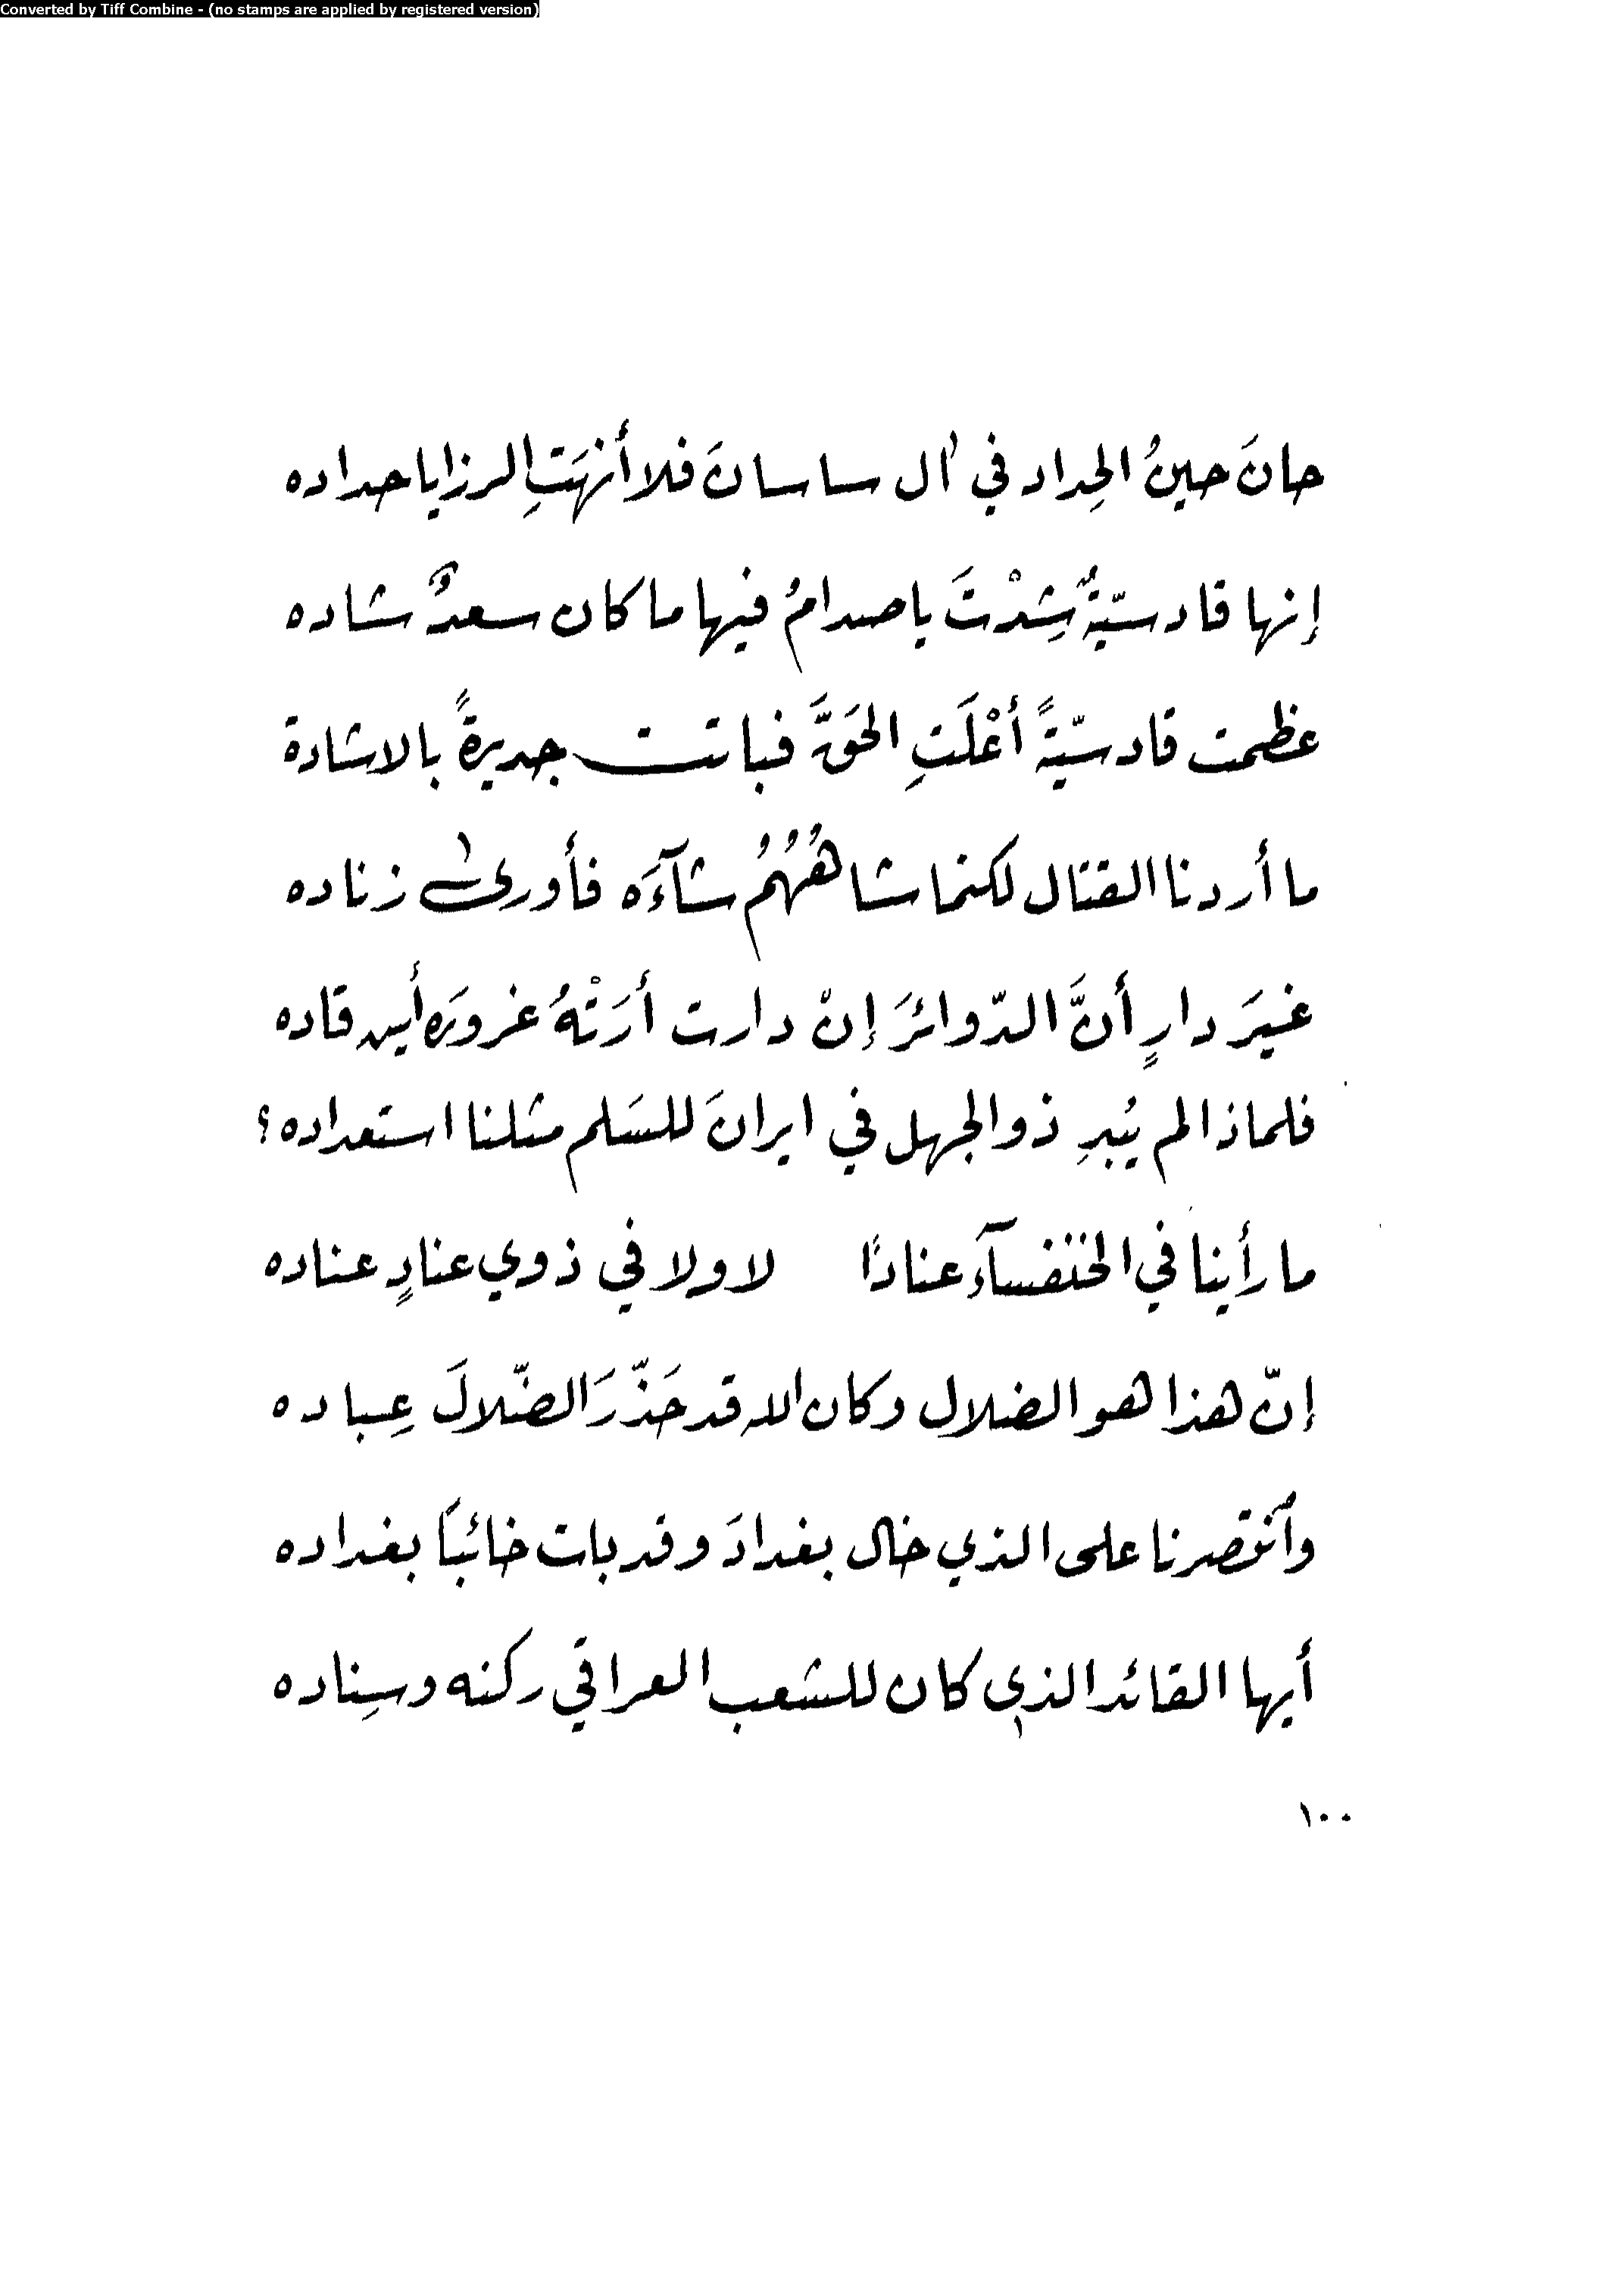 Converted by Tiff Combine - (no stamps are applied by registered version)
حانَ حينُ الحِداد في آل ساسانَ فلا أنهَتِ الرزايا حداده
إنها قادسيّةٌ شِدْتَ يا صدامُ فيها ما كان سعدٌ شاده
عظمت قادسيّةً أعْلَتِ الحَقَّ فباتت جديرةً بالاشادة
ما أردنا القتال لكنما شاهُهُمُ شآءَه فأورى زناده
غيرَ دارٍ أنَّ الدّوائرَ إنْ دارت أرَتْهُ غرورَه أين قاده
فلماذا لم يُبدِ ذو الجهل في ايرانَ للسَلم مثلنا استعداده؟
ما رأينا في الخنفسآءَ عنادًا لا ولا في ذوي عنادٍ عناده
إنّ هذا هو الضلال وكان الله قد حَذّرَ الضّلالَ عِباده
وآنتصرنا على الذي خال بغدادَ وقد بات خائبًا بغداده
أيها القائد الذي كان للشعب العراقي ركنه وسِناده
١٠٠